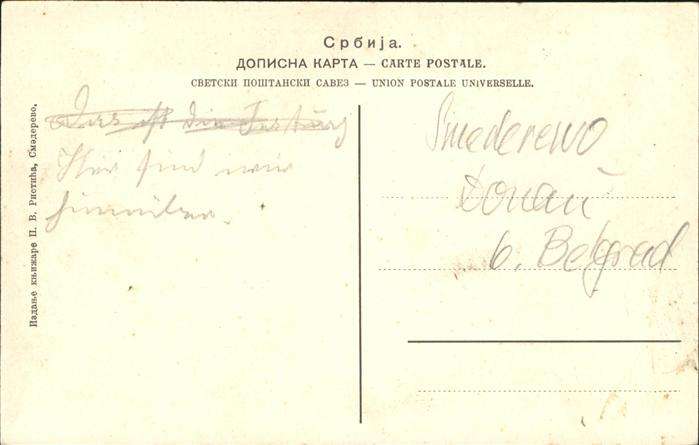 Србија.
ДОПИСНА КАРТА — CARTE POSTALE.
СВЕТСКИ ПОШТАНСКИ САВЕЗ — UNION POSTALE UNIVERSELLE.
Издање књижаре П. В. Ристића, Смедерево.
Das ist die Festung
Hier sind wir
Smederewo
Donau
b. Belgrad